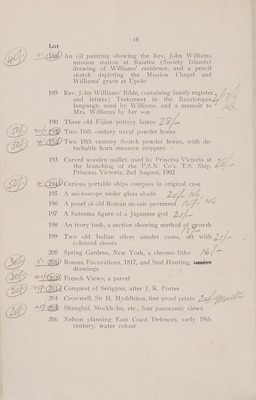 16
Lot
An oil painting showing the Rev. John Williams
mission station at Raiatea (Society Islands)
drawing of Williams' residence, and a pencil
sketch depicting the Mission Chapel and
Williams' grave at Upolo
189 Rev. John Williams' Bible, containing family register
and letters; Testament in the Raratongan
language, used by Williams, and a memoir to
Mrs. Williams by her son
190 Three old Fijian pottery lamps 28/-
Two 18th century naval powder horns
Two 18th century Scotch powder horns, with de-
tachable horn measure stoppers
193 Carved wooden mallet, used by Princess Victoria at
the launching of the P.S.N. Co's. T.S. Ship,
Princess Victoria, 2nd August, 1902
50/-
Curious portable ships compass in original case
195 A microscope under glass shade
196 A panel of old Roman mosaic pavement
197 A Satsuma figure of a Japanese god 21/-
198 An ivory tusk, a section showing method of growth
199 Two old Indian silver amulet cases, with
coloured stones
200 Spring Gardens, New York, a chromo litho 16/-
Roman Excavations, 1817, and Seal Hunting,
drawings
French Views, a parcel
Conquest of Seringpan, after J. K. Porter
204 Cromwell, Sir H. Myddleton, fine proof prints
Shanghai, Stockholm, etc., four panoramic views
206 Nelson planning East Coast Defences, early 19th
century, water colour